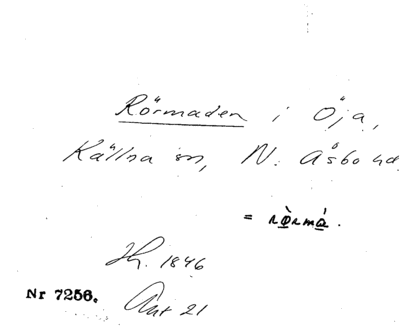 Rörmaden i Öja,
Källna sn, N. Åsbo hd
= rö̀rmá.
Jh. 1846
Nr 7256. Ant 21